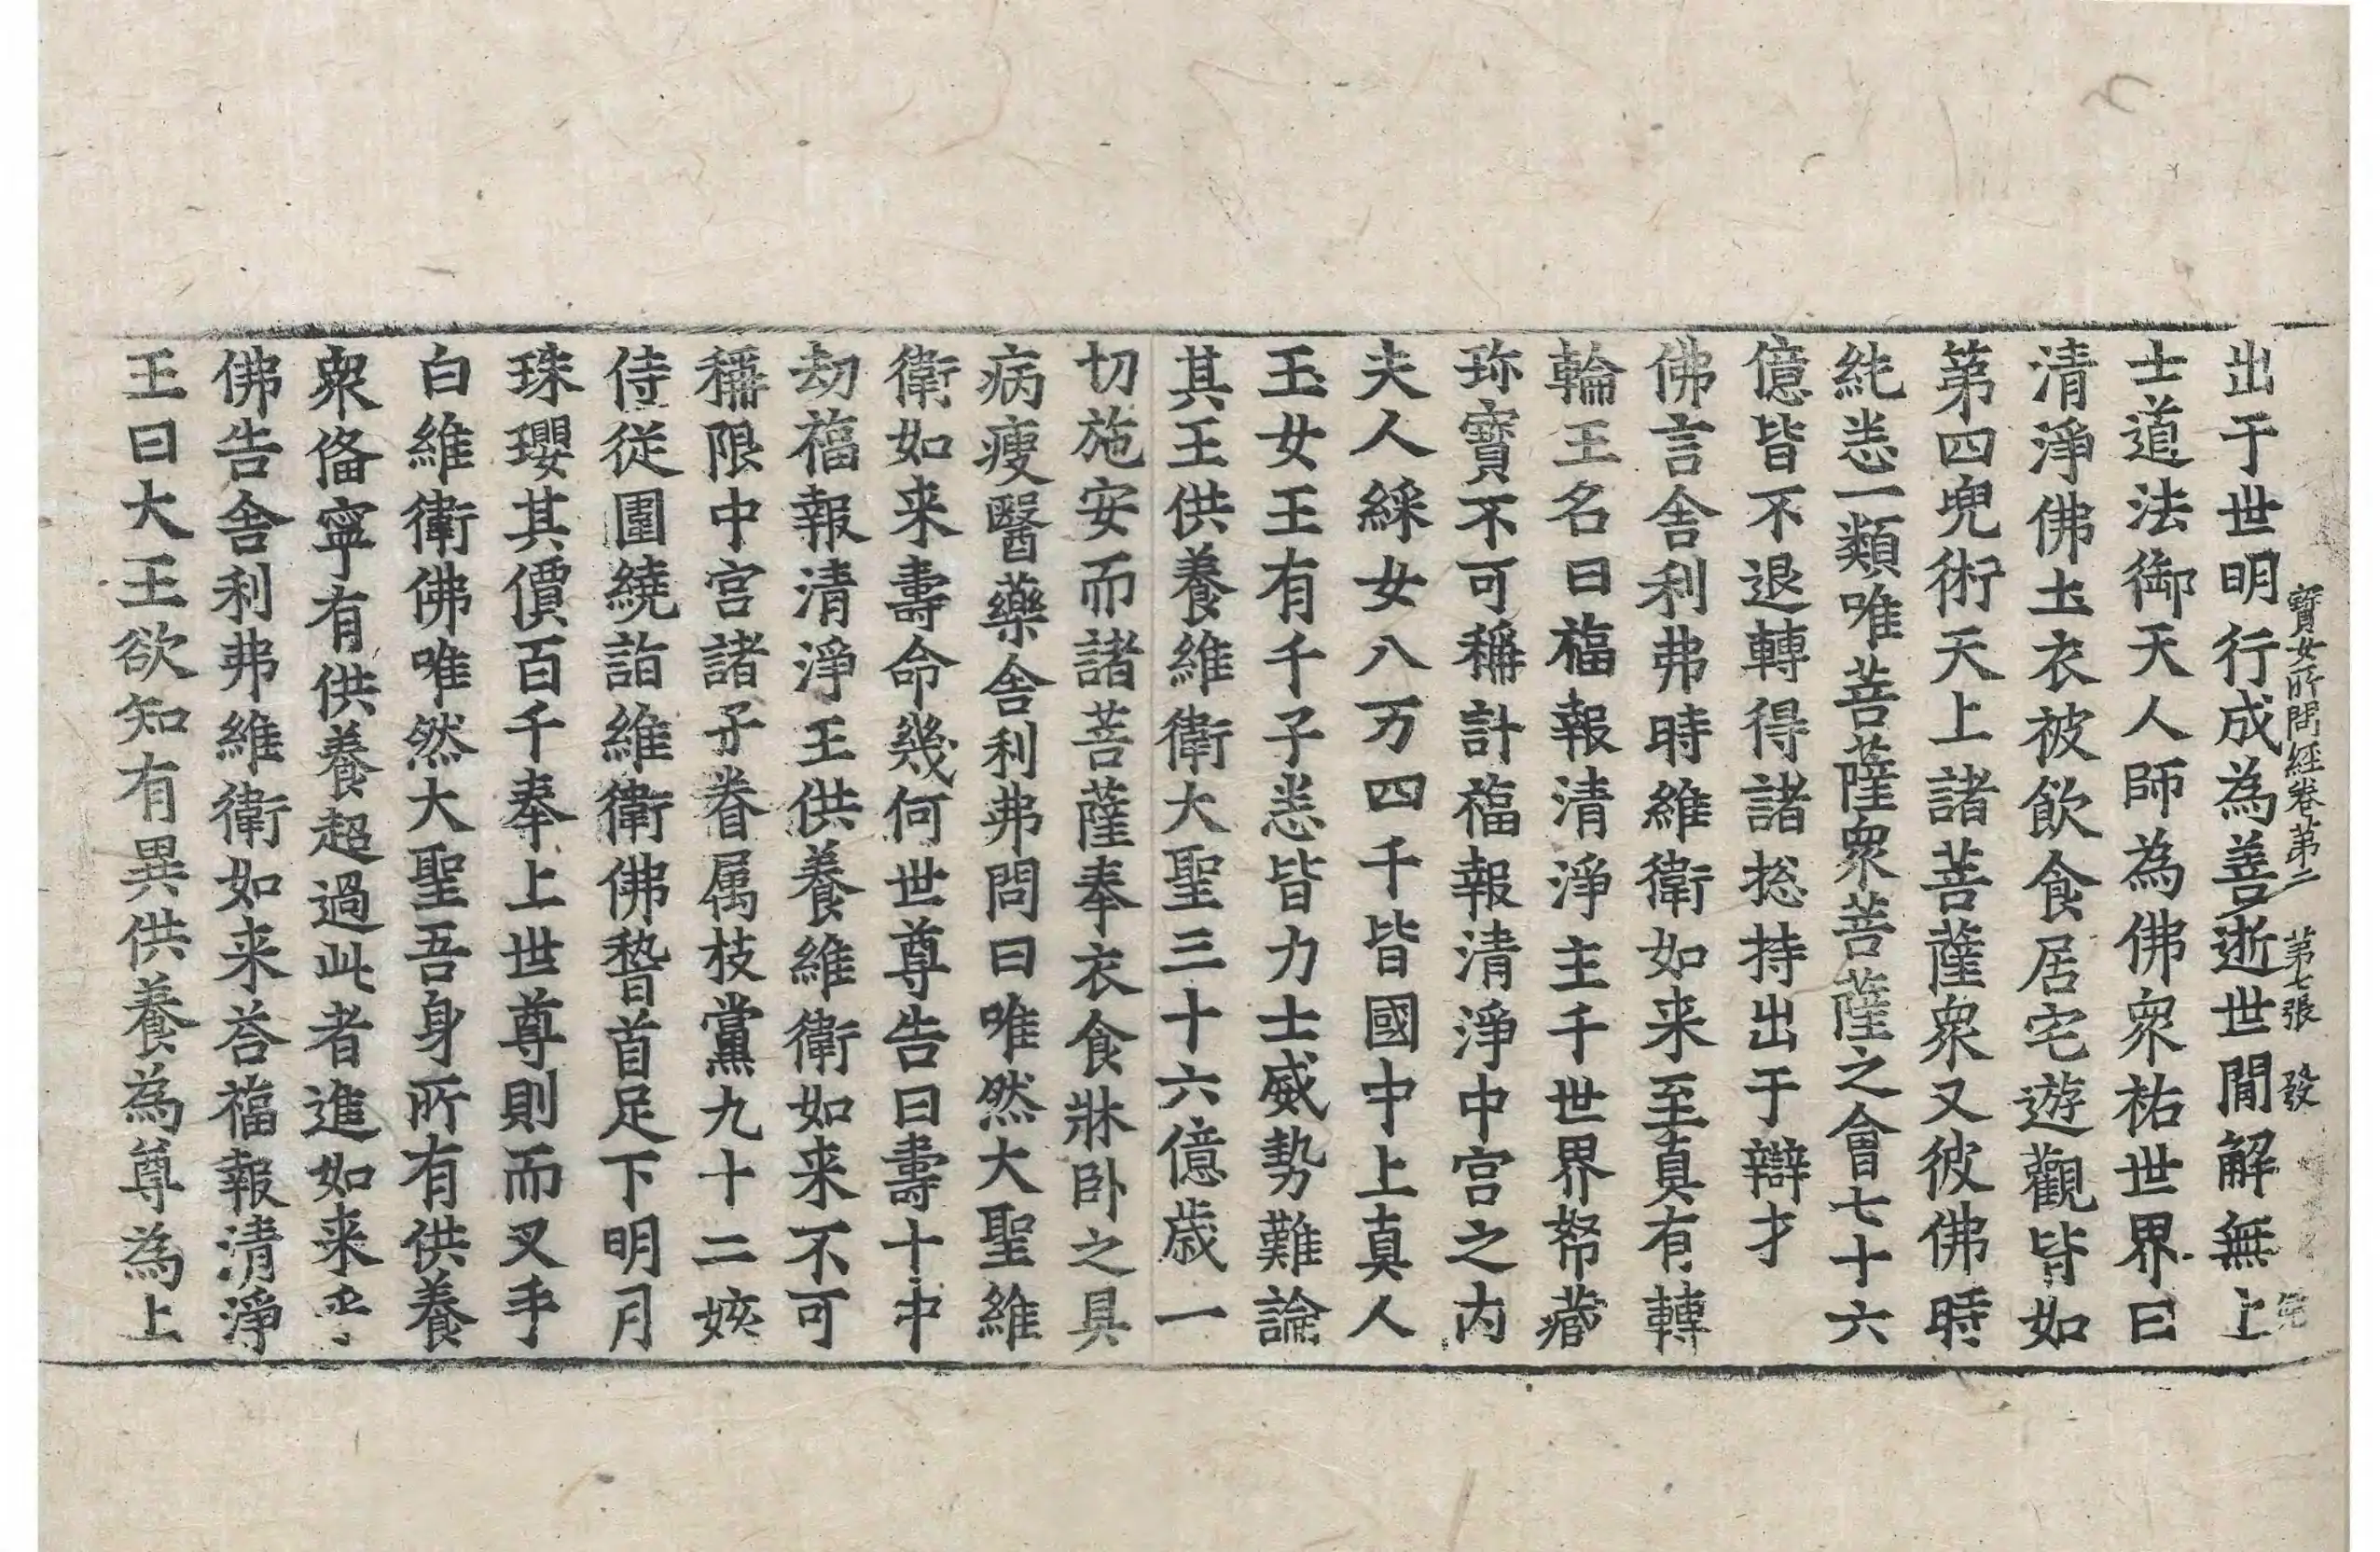 寶女所問經卷第二　第七張　發
出于世明行成為善逝世間解無上
士道法御天人師為佛衆祐世界曰
清淨佛土衣被飲食居宅遊觀皆如
第四兜術天上諸菩薩衆又彼佛時
純悉一類唯菩薩衆菩薩之會七十六
億皆不退轉得諸捴持出于辯才
佛言舎利弗時維衛如来至真有轉
輪王名曰福報清淨主千世界帑藏
珎寳不可稱計福報清淨中宫之内
夫人綵女八万四千皆國中上真人
玉女王有千子悉皆力士威勢難論
其王供養維衛大聖三十六億歳一
切施安而諸菩薩奉衣食牀卧之具
病瘦醫藥舎利弗問曰唯然大聖維
衛如来壽命幾何世尊告曰壽十中
劫福報清淨王供養維衛如来不可
稱限中宫諸子眷属枝黨九十二姟
侍従圍繞詣維衛佛稽首足下明月
珠瓔其價百千奉上世尊則而叉手
白維衛佛唯然大聖吾身所有供養
衆俻寧有供養超過此者進如来乎
佛告舎利弗維衛如来荅福報清淨
王曰大王欲知有異供養為尊為上